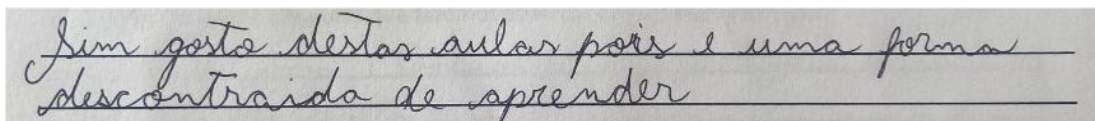 Sim gosto destas aulas pois e uma forma
descontraida de aprender